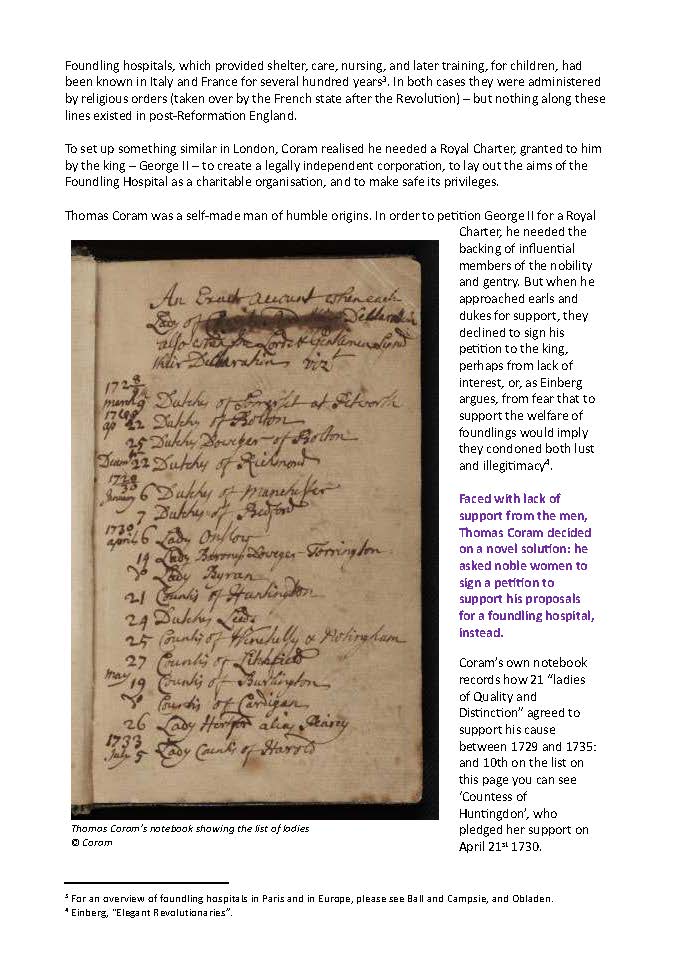 Foundling hospitals, which provided shelter, care, nursing, and later training, for children, had
been known in Italy and France for several hundred years³. In both cases they were administered
by religious orders (taken over by the French state after the Revolution) – but nothing along these
lines existed in post-Reformation England.
To set up something similar in London, Coram realised he needed a Royal Charter, granted to him
by the king – George II – to create a legally independent corporation, to lay out the aims of the
Foundling Hospital as a charitable organisation, and to make safe its privileges.
Thomas Coram was a self-made man of humble origins. In order to petition George II for a Royal
Charter, he needed the
backing of influential
members of the nobility
and gentry. But when he
approached earls and
dukes for support, they
declined to sign his
petition to the king,
perhaps from lack of
interest, or, as Einberg
argues, from fear that to
support the welfare of
foundlings would imply
they condoned both lust
and illegitimacy⁴.
Faced with lack of
support from the men,
Thomas Coram decided
on a novel solution: he
asked noble women to
sign a petition to
support his proposals
for a foundling hospital,
instead.
Coram's own notebook
records how 21 "ladies
of Quality and
Distinction" agreed to
support his cause
between 1729 and 1735:
and 10th on the list on
this page you can see
'Countess of
Huntingdon', who
pledged her support on
April 21ˢᵗ 1730.
An Exact account when each
Lady of Declaration
also when the Lords & Gentlemen Signd
their Declaration vizt
172
9 Dutchy of Somerset at Petworth
ap 22 Dutchy of Bolton
25 Dutchy Dowager of Bolton
22 Dutchy of Richmond
January 6 Dutchy of Manchester
7 Dutchy of Bedford
1730
april 6 Lady Onslow
14 Lady Dowager Torrington
Lady Byran
21 Countis of Huntingdon
24 Dutchy Leeds
25 Countis of & Notingham
27 Countis of
may 19 Countis of Burlington
Countis of Cardigan
26 Lady alias
1733
July 5 Lady Countis of Harold
Thomas Coram's notebook showing the list of ladies
© Coram
³ For an overview of foundling hospitals in Paris and in Europe, please see Ball and Campsie, and Obladen.
⁴ Einberg, "Elegant Revolutionaries".